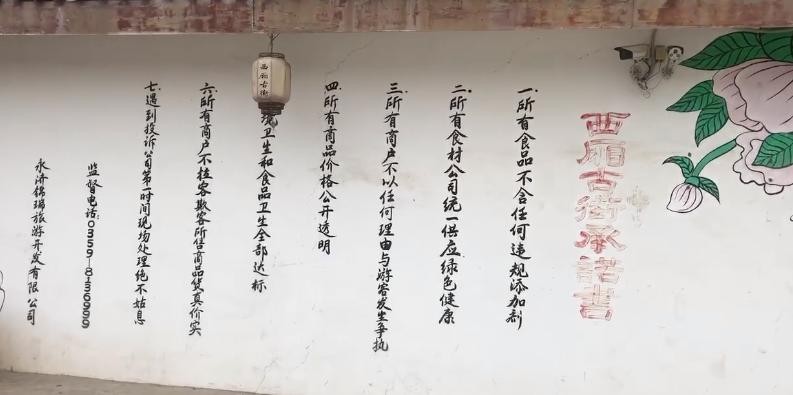 西厢古街承诺书
一.所有食品不含任何违规添加剂
二.所有食材公司统一供应.绿色健康
三.所有商户不以任何理由与游客发生争执
四.所有商品价格公开透明
境卫生和食品卫生全部达标
六.所有商户不拉客欺客所售商品货真价实
七.遇到投诉公司第一时间现场处理绝不姑息
监督电话:0359-8136999
永济锦瑞旅游开发有限公司
西厢古街